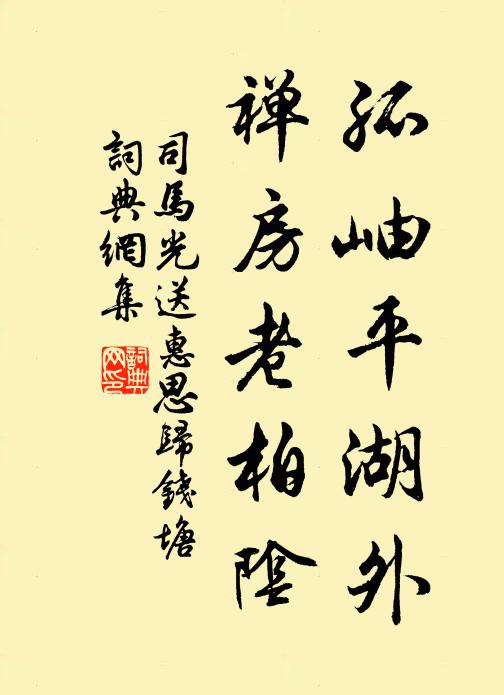 孤岫平湖外
禅房老柏陰
司馬光送惠思歸錢塘
詞典網集
詞典网印